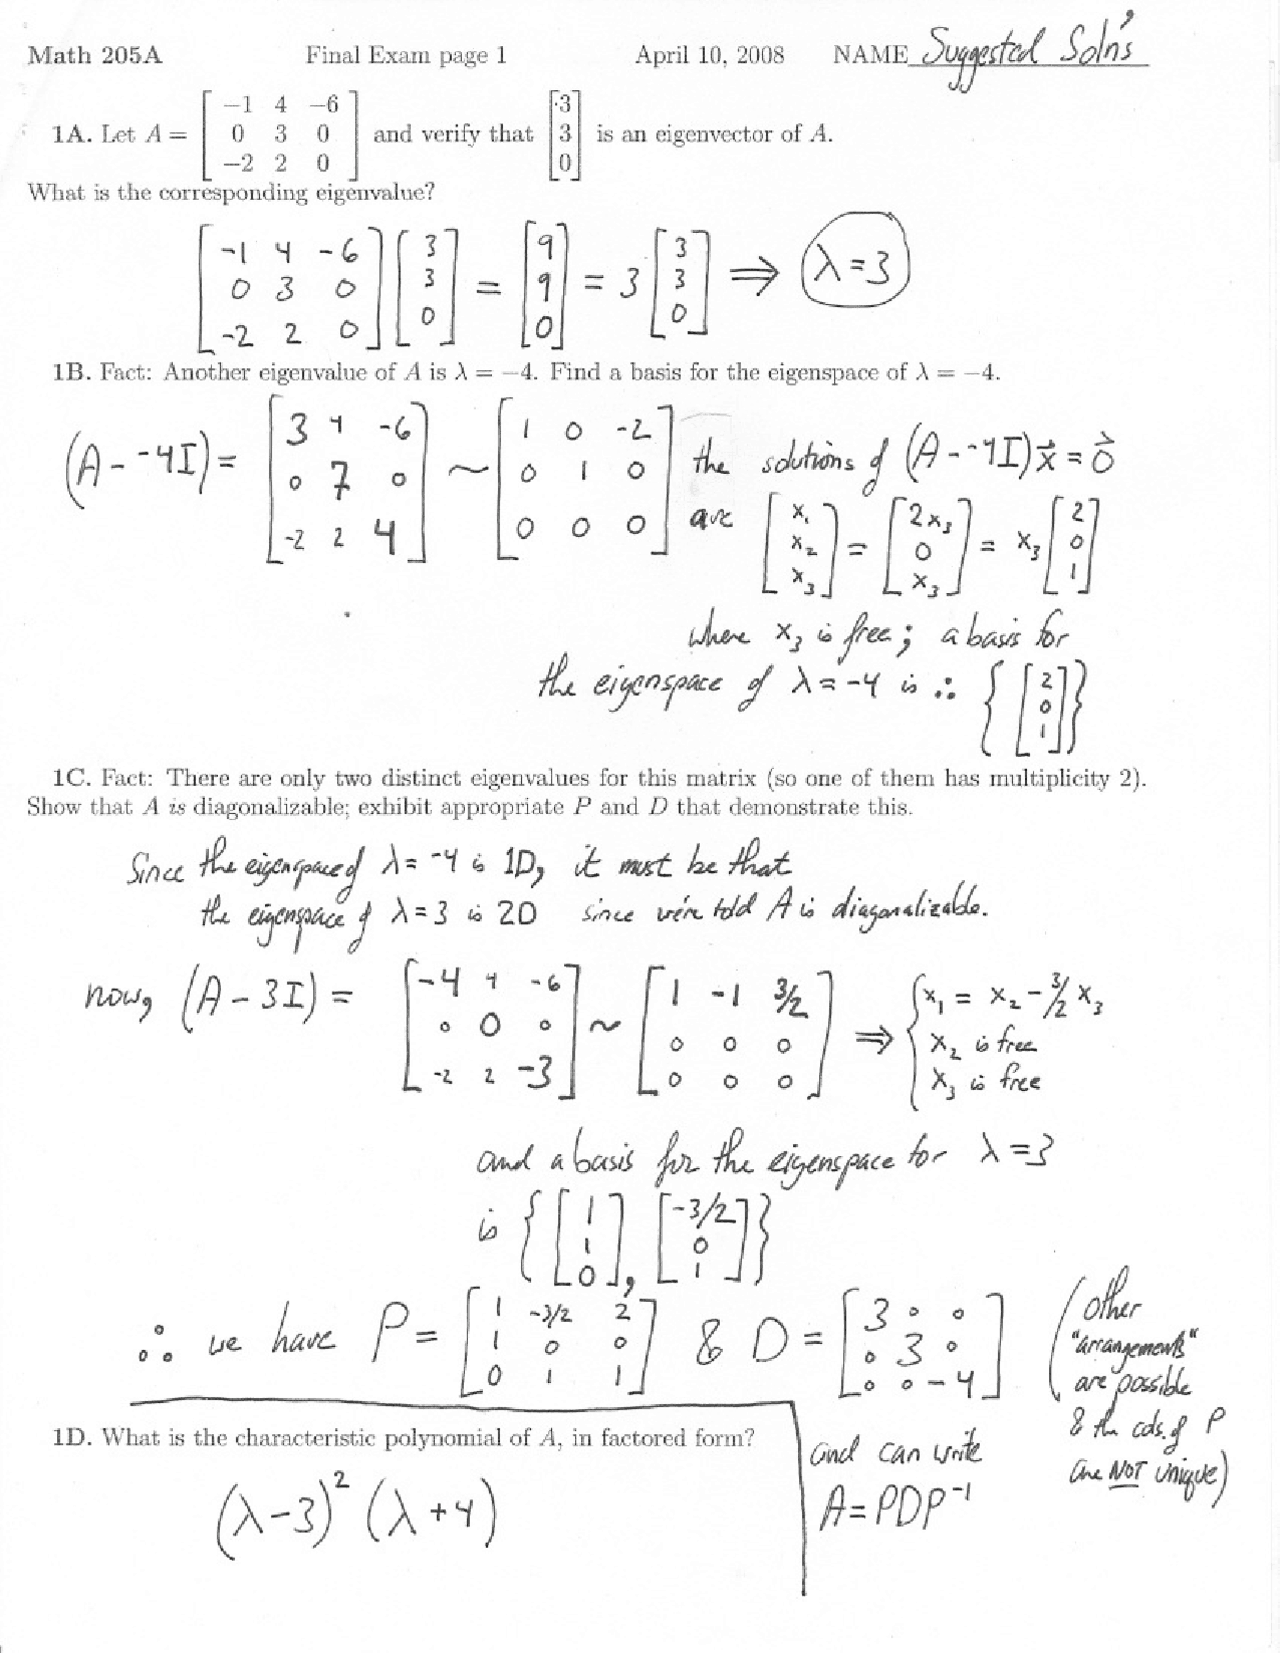 Math 205A Final Exam page 1 April 10, 2008 NAME Suggested Soln's
1A. Let A = [ −1 4 −6 ; 0 3 0 ; −2 2 0 ] and verify that [ 3 ; 3 ; 0 ] is an eigenvector of A.
What is the corresponding eigenvalue?
[ -1 4 -6 ; 0 3 0 ; -2 2 0 ] [ 3 ; 3 ; 0 ] = [ 9 ; 9 ; 0 ] = 3 [ 3 ; 3 ; 0 ] ⇒ λ=3
1B. Fact: Another eigenvalue of A is λ = −4. Find a basis for the eigenspace of λ = −4.
(A - -4I) = [ 3 4 -6 ; 0 7 0 ; -2 2 4 ] ~ [ 1 0 -2 ; 0 1 0 ; 0 0 0 ] the solutions of (A - -4I)x⃗ = 0⃗
are [ x₁ ; x₂ ; x₃ ] = [ 2x₃ ; 0 ; x₃ ] = x₃ [ 2 ; 0 ; 1 ]
where x₃ is free; a basis for
the eigenspace of λ = -4 is ∴ { [ 2 ; 0 ; 1 ] }
1C. Fact: There are only two distinct eigenvalues for this matrix (so one of them has multiplicity 2).
Show that A is diagonalizable; exhibit appropriate P and D that demonstrate this.
Since the eigenspace of λ = -4 is 1D, it must be that
the eigenspace of λ = 3 is 2D since we're told A is diagonalizable.
now, (A - 3I) = [ -4 4 -6 ; 0 0 0 ; -2 2 -3 ] ~ [ 1 -1 3/2 ; 0 0 0 ; 0 0 0 ] ⇒ { x₁ = x₂ - 3/2 x₃
x₂ is free
x₃ is free
and a basis for the eigenspace for λ = 3
is { [ 1 ; 1 ; 0 ], [ -3/2 ; 0 ; 1 ] }
∴ we have P = [ 1 -3/2 2 ; 1 0 0 ; 0 1 1 ] & D = [ 3 0 0 ; 0 3 0 ; 0 0 -4 ]
(other
"arrangements"
are possible
& the cols. of P
are NOT unique)
and can write
A = PDP⁻¹
1D. What is the characteristic polynomial of A, in factored form?
(λ-3)² (λ+4)